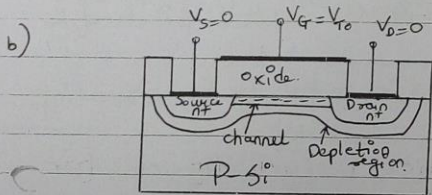 b)
V_S=0
V_G=V_T0
V_D=0
Oxide.
Source
n+
Drain
n+
channel
Depletion
region.
P-Si